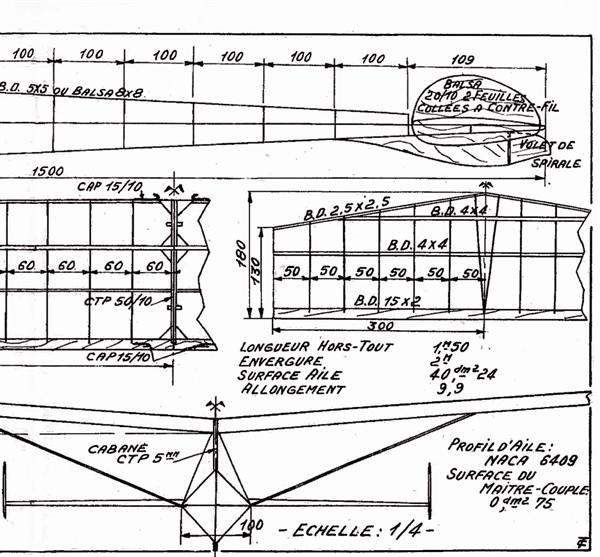 100 100 100 100 100 100 109
B.D. 5x5 OU BALSA 8x8
BALSA
20/10 2 FEUILLES
COLLÉES A CONTRE-FIL
VOLET DE
SPIRALE
1500
CAP 15/10
60 60 60 60
CTP 50/10
CAP 15/10
180
130
B.D. 2,5 x 2,5
B.D. 4x4
B.D. 4x4
50 50 50 50 50
B.D. 15x2
300
LONGUEUR HORS-TOUT 1,M50
ENVERGURE 2M
SURFACE AILE 40,dm2 24
ALLONGEMENT 9,9
CABANE
CTP 5mm
100
- ECHELLE: 1/4 -
PROFIL D'AILE:
NACA 6409
SURFACE DU
MAITRE-COUPLE
0,dm2 75